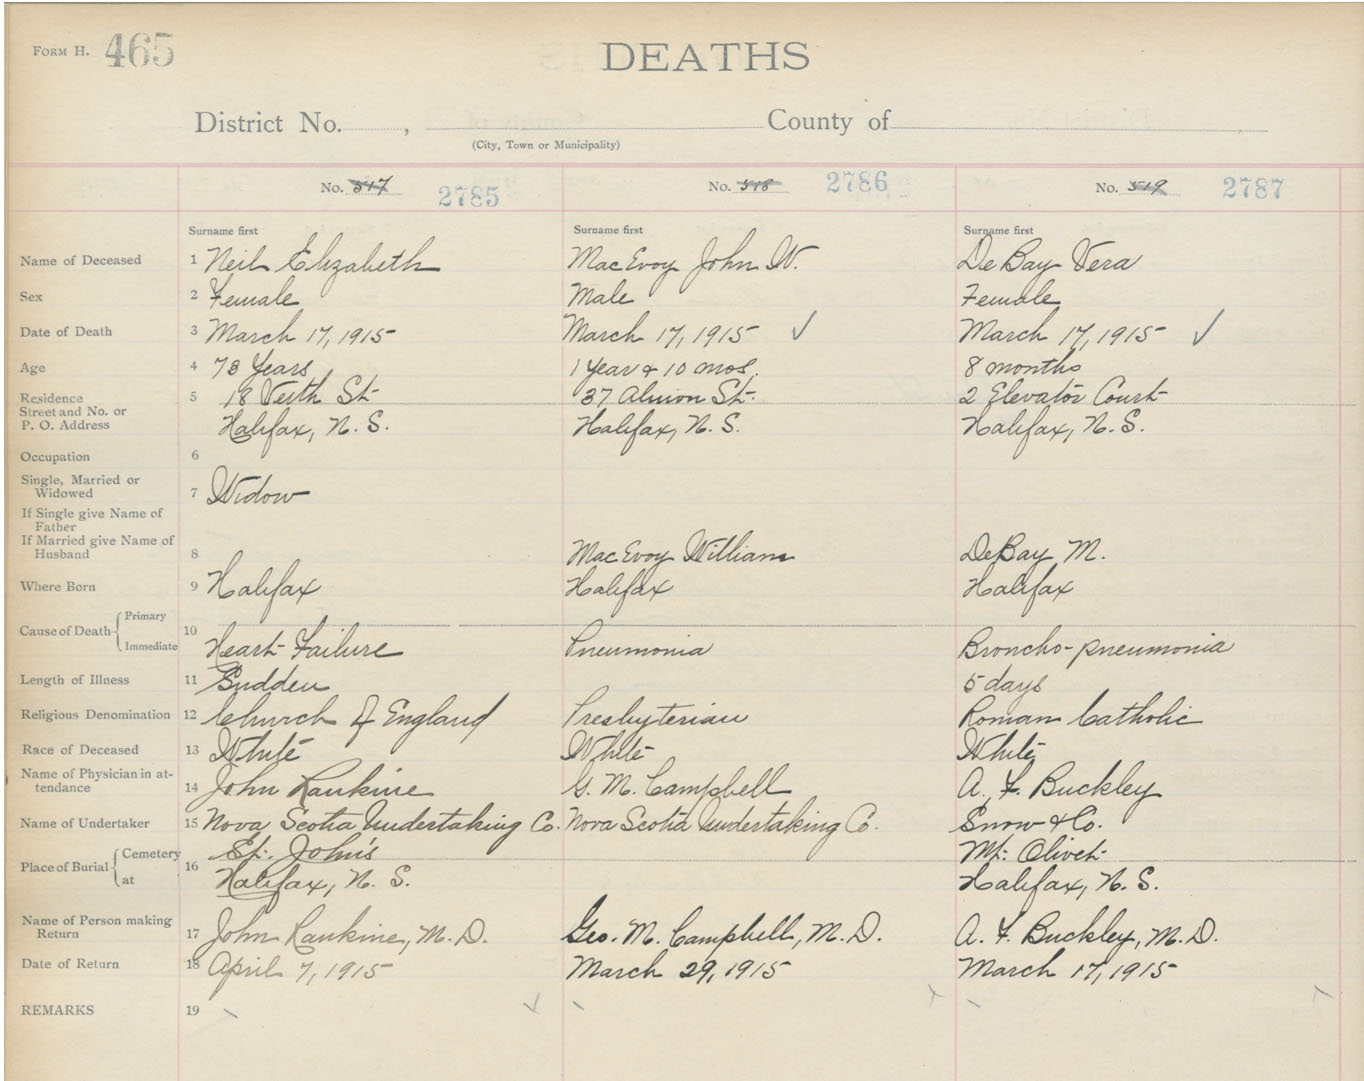 FORM H. 465
DEATHS
District No. , County of
(City, Town or Municipality)
No. 517 2785 No. 518 2786 No. 519 2787
Surname first Surname first Surname first
Name of Deceased 1 Neil Elizabeth MacEvoy John W. DeBay Vera
Sex 2 Female Male Female
Date of Death 3 March 17, 1915 March 17, 1915 ✓ March 17, 1915 ✓
Age 4 73 Years 1 Year & 10 mos. 8 months
Residence 5 18 St. 37 Almon St. 2 Elevator Court
Street and No. or
P. O. Address Halifax, N. S. Halifax, N. S. Halifax, N. S.
Occupation 6
Single, Married or
Widowed 7 Widow
If Single give Name of
Father
If Married give Name of
Husband 8 MacEvoy William DeBay M.
Where Born 9 Halifax Halifax Halifax
Primary
Cause of Death 10
Immediate Heart Failure Pneumonia Broncho-pneumonia
Length of Illness 11 Sudden 5 days
Religious Denomination 12 Church of England Presbyterian Roman Catholic
Race of Deceased 13 White White White
Name of Physician in at-
tendance 14 John Rankine G. M. Campbell A. F. Buckley
Name of Undertaker 15 Nova Scotia Undertaking Co. Nova Scotia Undertaking Co. Snow & Co.
Cemetery St. John's Mt. Olivet
Place of Burial 16
at Halifax, N. S. Halifax, N. S.
Name of Person making
Return 17 John Rankine, M. D. Geo. M. Campbell, M. D. A. F. Buckley, M. D.
Date of Return 18 April 7, 1915 March 29, 1915 March 17, 1915
REMARKS 19